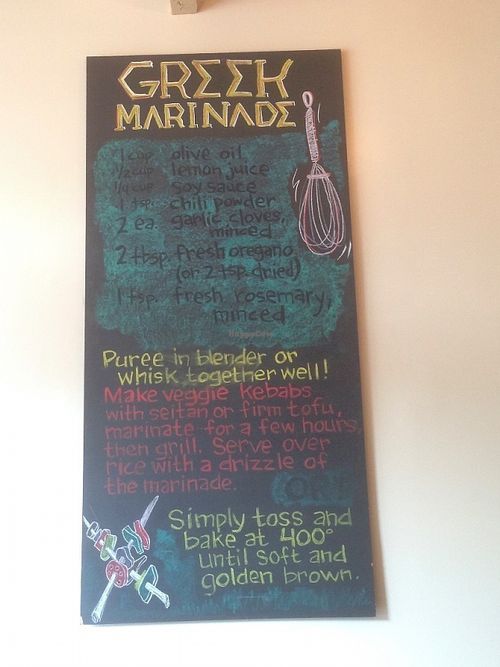 GREEK
MARINADE
1 cup olive oil
1/2 cup lemon juice
1/4 cup soy sauce
1 tsp. chili powder
2 ea. garlic cloves,
minced
2 tbsp. fresh oregano
(or 2 tsp. dried)
1 tsp. fresh rosemary,
minced
HappyCow
Puree in blender or
whisk together well!
Make veggie kebabs
with seitan or firm tofu,
marinate for a few hours,
then grill. Serve over
rice with a drizzle of
the marinade.
OR!
Simply toss and
bake at 400°
until soft and
golden brown.